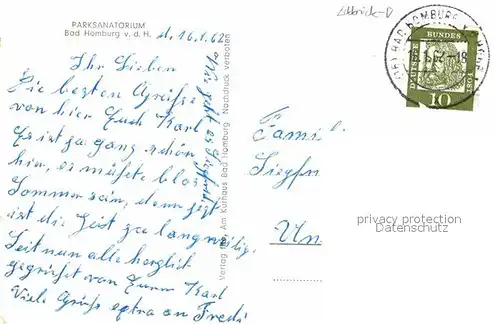 PARKSANATORIUM
Bad Homburg v. d. H.
d. 16.1.62
Ihr Lieben
Die besten Grüße
von hier Euch Karl
Es ist ja ganz schön
hier, es müßte blos
Sommer sein, denn jetzt
ist die Zeit so langweilig.
Seit nun alle herzlich
gegrüßet von Eurem Karl
Viele Grüße extra an Fredi
Wie geht es
Verlag Am Kurhaus Bad Homburg Nachdruck verboten
Famil
Siegfr
Un
BAD HOMBURG
DEUTSCHE BUNDESPOST
10
privacy protection
Datenschutz